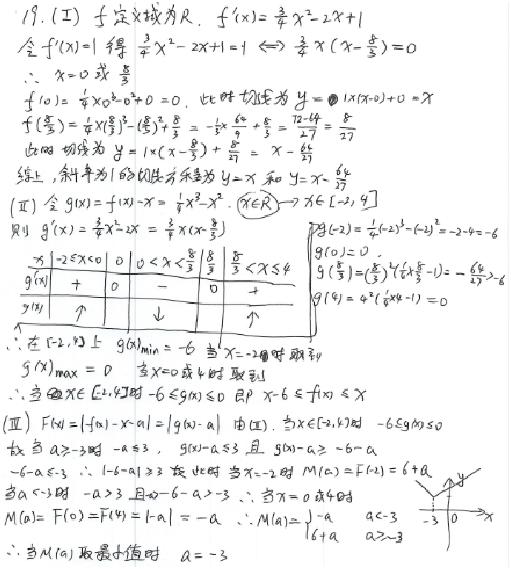 19.(Ⅰ) f 定义域为R. f'(x)=3/4x²-2x+1
令f'(x)=1 得 3/4x²-2x+1=1 ⟺ 3/4x(x-8/3)=0
∴ x=0或8/3
f(0)=1/4×0³-0²+0=0, 此时切线为y=1×(x-0)+0=x
f(8/3)=1/4×(8/3)³-(8/3)²+8/3=-1/3×64/9+8/3=72-64/27=8/27
此时切线为y=1×(x-8/3)+8/27=x-64/27
综上,斜率为1的切线方程为y=x和y=x-64/27
(Ⅱ) 令g(x)=f(x)-x=1/4x³-x². x∈R → x∈[-2,4]
则g'(x)=3/4x²-2x=3/4x(x-8/3)
x | -2≤x<0 | 0 | 0<x<8/3 | 8/3 | 8/3<x≤4
g'(x) | + | 0 | - | 0 | +
g(x) | ↑ | | ↓ | | ↑
g(-2)=1/4(-2)³-(-2)²=-2-4=-6
g(0)=0.
g(8/3)=(8/3)²(1/4×8/3-1)=-64/27>-6
g(4)=4²(1/4×4-1)=0
∴在[-2,4]上 g(x)min=-6 当x=-2时取到
g(x)max=0 当x=0或4时取到
∴当x∈[-2,4]时 -6≤g(x)≤0 即 x-6≤f(x)≤x
(Ⅲ) F(x)=|f(x)-x-a|=|g(x)-a| 由(Ⅱ), 当x∈[-2,4]时 -6≤g(x)≤0
故当a≥-3时 -a≤3, g(x)-a≤3 且 g(x)-a≥-6-a
-6-a≤-3 ∴|-6-a|≥3 故此时当x=-2时 M(a)=F(-2)=6+a
当a<-3时 -a>3 且-6-a>-3 ∴当x=0或4时
M(a)=F(0)=F(4)=|-a|=-a ∴M(a)={-a a<-3
6+a a≥-3
y
-3 0 x
∴当M(a)取最小值时 a=-3